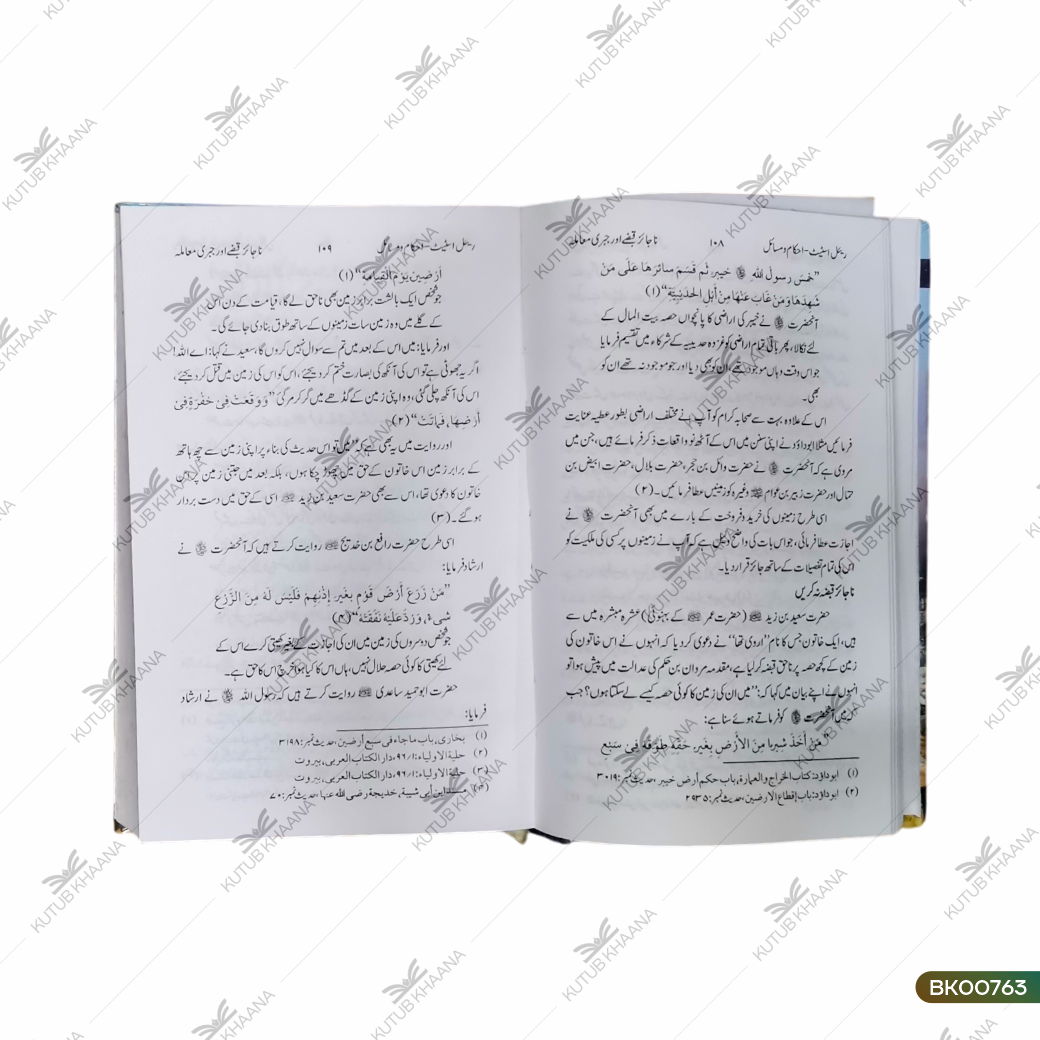 ریئل اسٹیٹ - احکام و مسائل ۱۰۸ ناجائز قبضے اور جبری معاملہ
”خمس رسول اللہ ﷺ خیبر، ثم قسم سائرھا علی من
شھدھا ومن غاب عنھا من أھل الحدیبیة“ (۱)
آنحضرت ﷺ نے خیبر کی اراضی کا پانچواں حصہ بیت المال کے
لئے نکالا، پھر باقی تمام اراضی کو غزوہ حدیبیہ کے شرکاء میں تقسیم فرمایا
جو اس وقت وہاں موجود تھے، ان کو بھی دیا اور جو موجود نہ تھے ان کو
بھی۔
اس کے علاوہ بہت سے صحابہ کرام کو آپ نے مختلف اراضی بطور عطیہ عنایت
فرمائیں مثلا ابوداؤد نے اپنی سنن میں اس کے آٹھ نو واقعات ذکر فرمائے ہیں، جن میں
مروی ہے کہ آنحضرت ﷺ نے حضرت وائل بن حجر، حضرت بلال، حضرت ابیض بن
حمال اور حضرت زبیر بن عوام ﷺ وغیرہ کو زمینیں عطا فرمائیں۔ (۲)
اسی طرح زمینوں کی خرید و فروخت کے بارے میں بھی آنحضرت ﷺ نے
اجازت عطا فرمائی، جو اس بات کی واضح دلیل ہے کہ آپ نے زمینوں پر کسی کی ملکیت کو
اس کی تمام تفصیلات کے ساتھ جائز قرار دیا۔
ناجائز قبضہ نہ کریں
حضرت سعید بن زید (حضرت عمر کے بہنوئی) عشرہ مبشرہ میں سے
ہیں، ایک خاتون جس کا نام ”اروی تھا“ نے دعوی کر دیا کہ انہوں نے اس خاتون کی
زمین کے کچھ حصہ پر ناحق قبضہ کر لیا ہے، مقدمہ مروان بن حکم کی عدالت میں پیش ہوا تو
انہوں نے اپنے بیان میں کہا کہ: ”میں ان کی زمین کا کوئی حصہ کیسے لے سکتا ہوں؟ جب
کہ میں آنحضرت ﷺ کو فرماتے ہوئے سنا ہے:
مَنْ أَخَذَ شِبراً مِنَ الْأَرْضِ بِغَیرِ حَقِّه طُوِّقَه فِيْ سَبْعِ
(۱) ابوداؤد: کتاب الخراج والعمارة، باب حکم أرض خیبر، حدیث نمبر: ۳۰۱۹
(۲) ابوداؤد: باب إقطاع الارضین، حدیث نمبر: ۲۹۳۵
ریئل اسٹیٹ - احکام و مسائل ۱۰۹ ناجائز قبضے اور جبری معاملہ
أرْضِینَ یَوْمَ الْقِیَامَةِ“ (۱)
جو شخص ایک بالشت برابر زمین بھی ناحق لے گا، قیامت کے دن اس
کے گلے میں وہ زمین سات زمینوں کے ساتھ طوق بنا دی جائے گی۔
اور فرمایا: میں اس کے بعد میں تم سے سوال نہیں کروں گا، سعید نے کہا: اے اللہ!
اگر یہ جھوٹی ہے تو اس کی آنکھ کی بصارت ختم کر دیجئے، اس کو اس کی زمین میں قتل کر دیجئے،
اس کی آنکھ چلی گئی، وہ اپنی زمین کے گڈھے میں گر کر مر گئی ”وَوَقَعَتْ فِيْ حُفْرَةٍ فِيْ
أرْضِهَا، فَمَاتَتْ“ (۲)
اور روایت میں یہ بھی ہے کہ ”میں تو اس حدیث کی بناء پر اپنی زمین سے چھ ہاتھ
کے برابر زمین اس خاتون کے حق میں چھوڑ چکا ہوں، بلکہ بعد میں جتنی زمین پر اس
خاتون کا دعوی تھا، اس سے بھی حضرت سعید بن زید اسی کے حق میں دست بردار
ہو گئے۔ (۳)
اسی طرح حضرت رافع بن خدیج روایت کرتے ہیں کہ آنحضرت ﷺ نے
ارشاد فرمایا:
”مَنْ زَرَعَ أَرْضَ قَوْمٍ بِغَیرِ إذْنِهِمْ فَلَیْسَ لَهُ مِنَ الزَّرْعِ
شیء، وَرَدَّ عَلَیْهِ نَفَقَتَهُ“ (۴)
جو شخص دوسروں کی زمین میں ان کی اجازت کے بغیر کھیتی کرے اس کے
لئے کھیتی کا کوئی حصہ حلال نہیں، ہاں اس کا کیا ہوا خرچ اس کا حق ہے۔
حضرت ابوحمید ساعدی روایت کرتے ہیں کہ رسول اللہ ﷺ نے ارشاد
فرمایا:
(۱) بخاری، باب ماجاء فی سبع أرضین، حدیث نمبر: ۳۱۹۸
(۲) حلیة الاولیاء: ۹۶/۱، دار الکتاب العربی، بیروت
(۳) حلیة الاولیاء: ۹۶/۱، دار الکتاب العربی، بیروت
(۴) مسند ابن أبی شیبة، خدیجة رضی الله عنها، حدیث نمبر: ۷۰
KUTUB KHAANA
BK00763